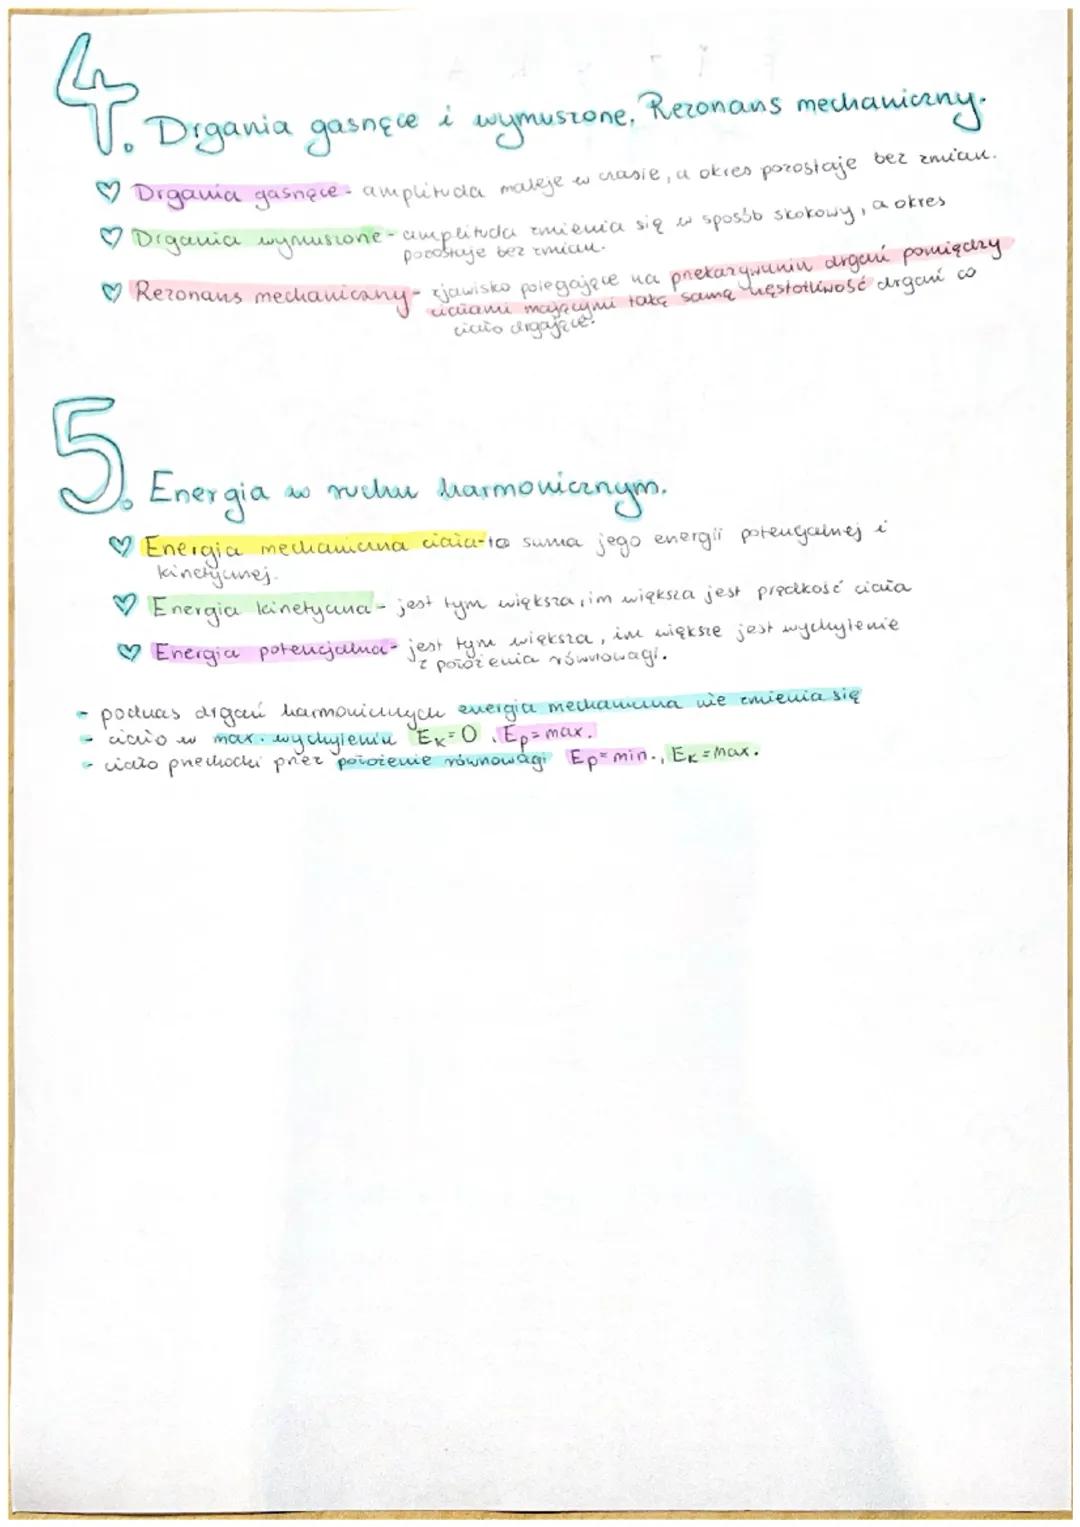 4. Drgania gasnące i wymuszone. Rezonans mechaniczny.
♡ Drgania gasnące - amplituda maleje w czasie, a okres pozostaje bez zmian.
♡ Drgania wymuszone - amplituda zmienia się w sposób skokowy, a okres
pozostaje bez zmian.
♡ Rezonans mechaniczny - zjawisko polegające na przekazywaniu drgań pomiędzy
ciałami mającymi taką samą częstotliwość drgań co
ciało drgające.
5. Energia w ruchu harmonicznym.
♡ Energia mechaniczna ciała - to suma jego energii potencjalnej i
kinetycznej.
♡ Energia kinetyczna - jest tym większa, im większa jest prędkość ciała
♡ Energia potencjalna - jest tym większa, im większe jest wychylenie
z położenia równowagi.
- podczas drgań harmonicznych energia mechaniczna nie zmienia się
- ciało w max. wychyleniu Eₖ=0, Eₚ=max.
- ciało przechodzi przez położenie równowagi Eₚ=min., Eₖ=max.